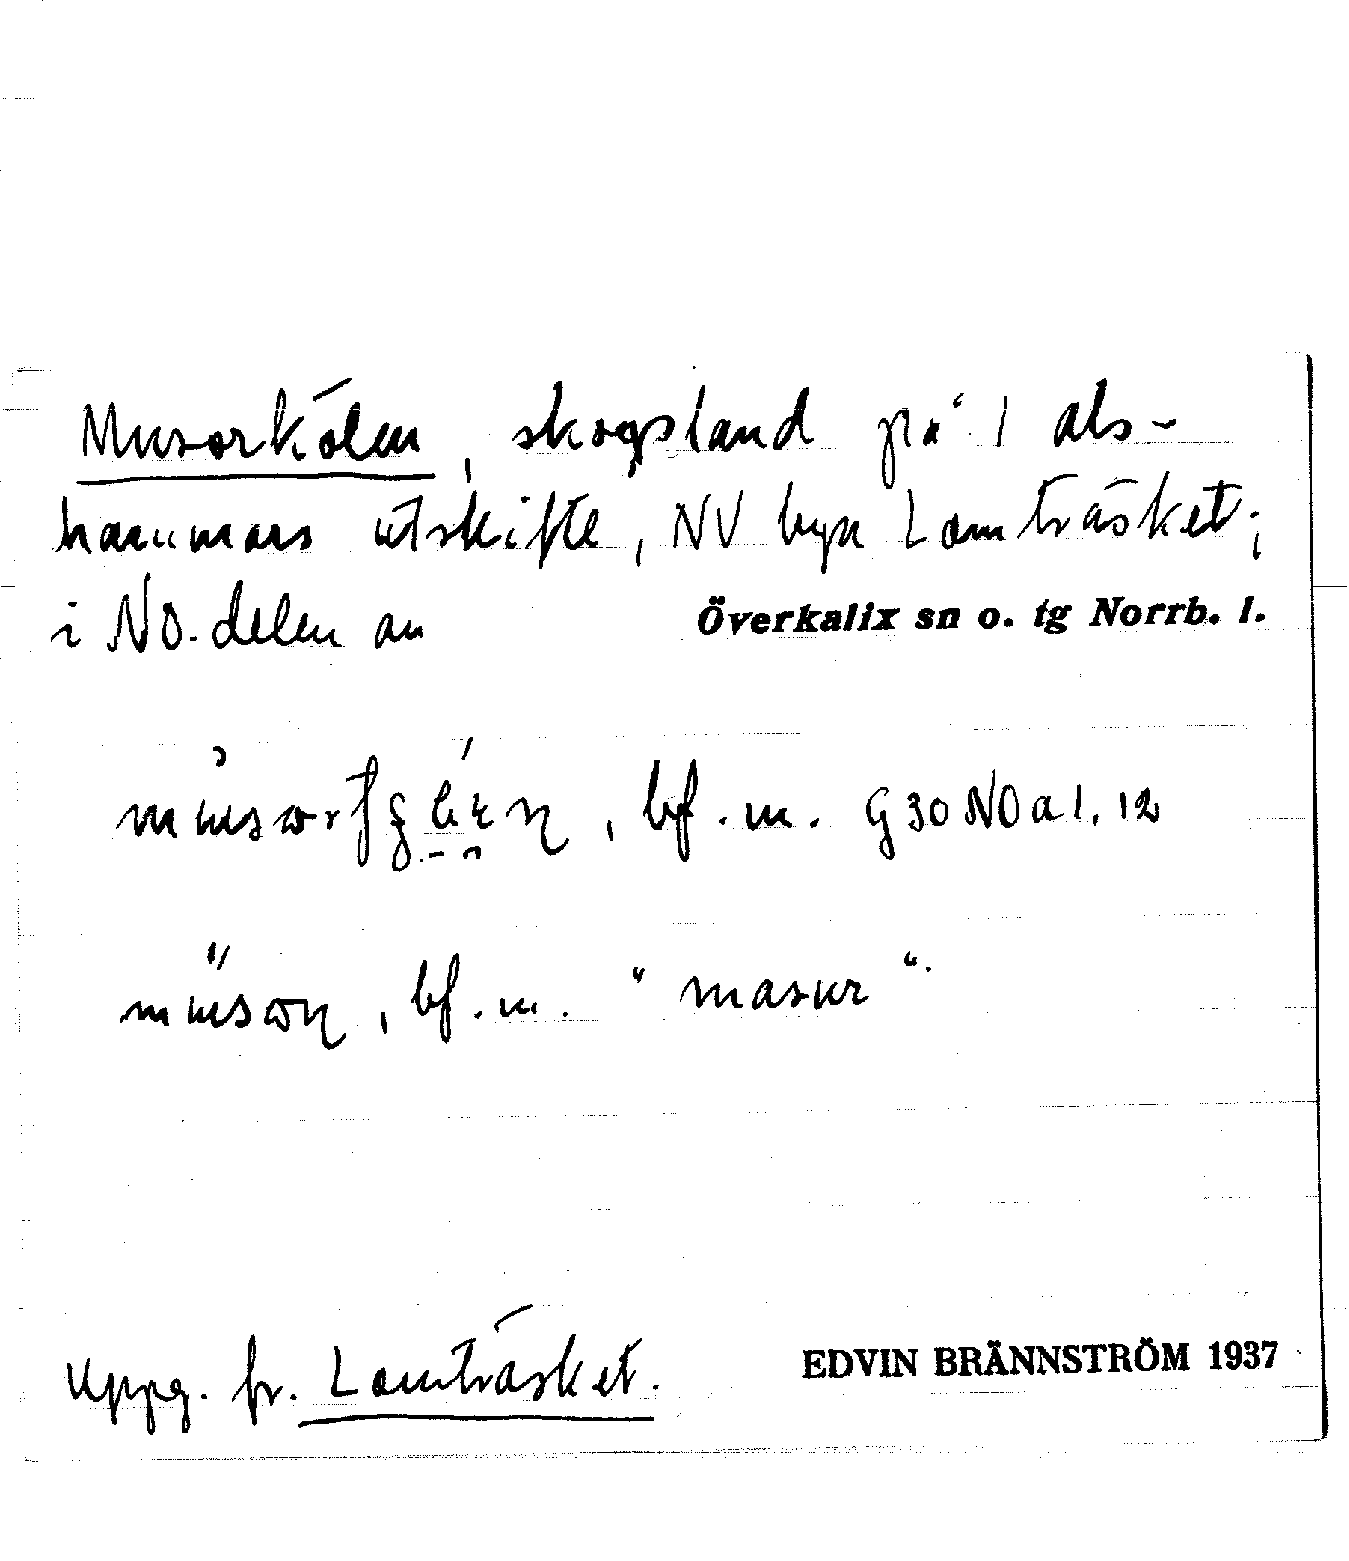 Musorkölen, skogsland på Jäls-
hammars utskifte, NV bya Lomträsket;
i NO. delen av
Överkalix sn o. tg Norrb. l.
, bf. m. G30 NO a 1. 12
, bf. m. "masur".
Uppg. fr. Lomträsket.
EDVIN BRÄNNSTRÖM 1937